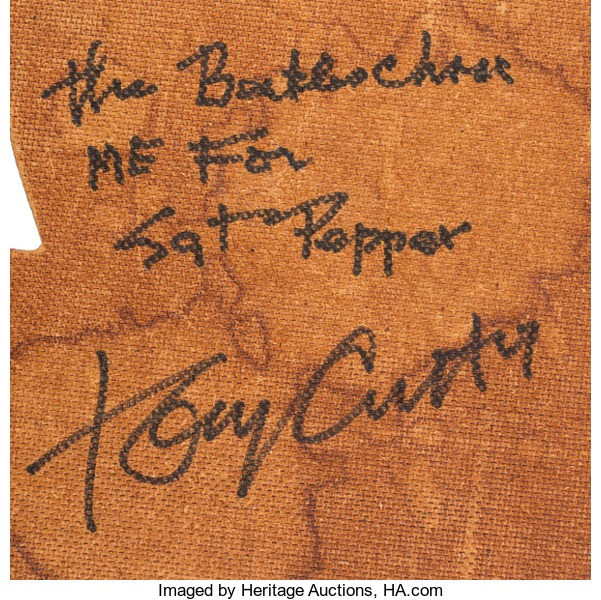 the Beatles chose
ME For
Sgt. Pepper
Tony Curtis
Imaged by Heritage Auctions, HA.com